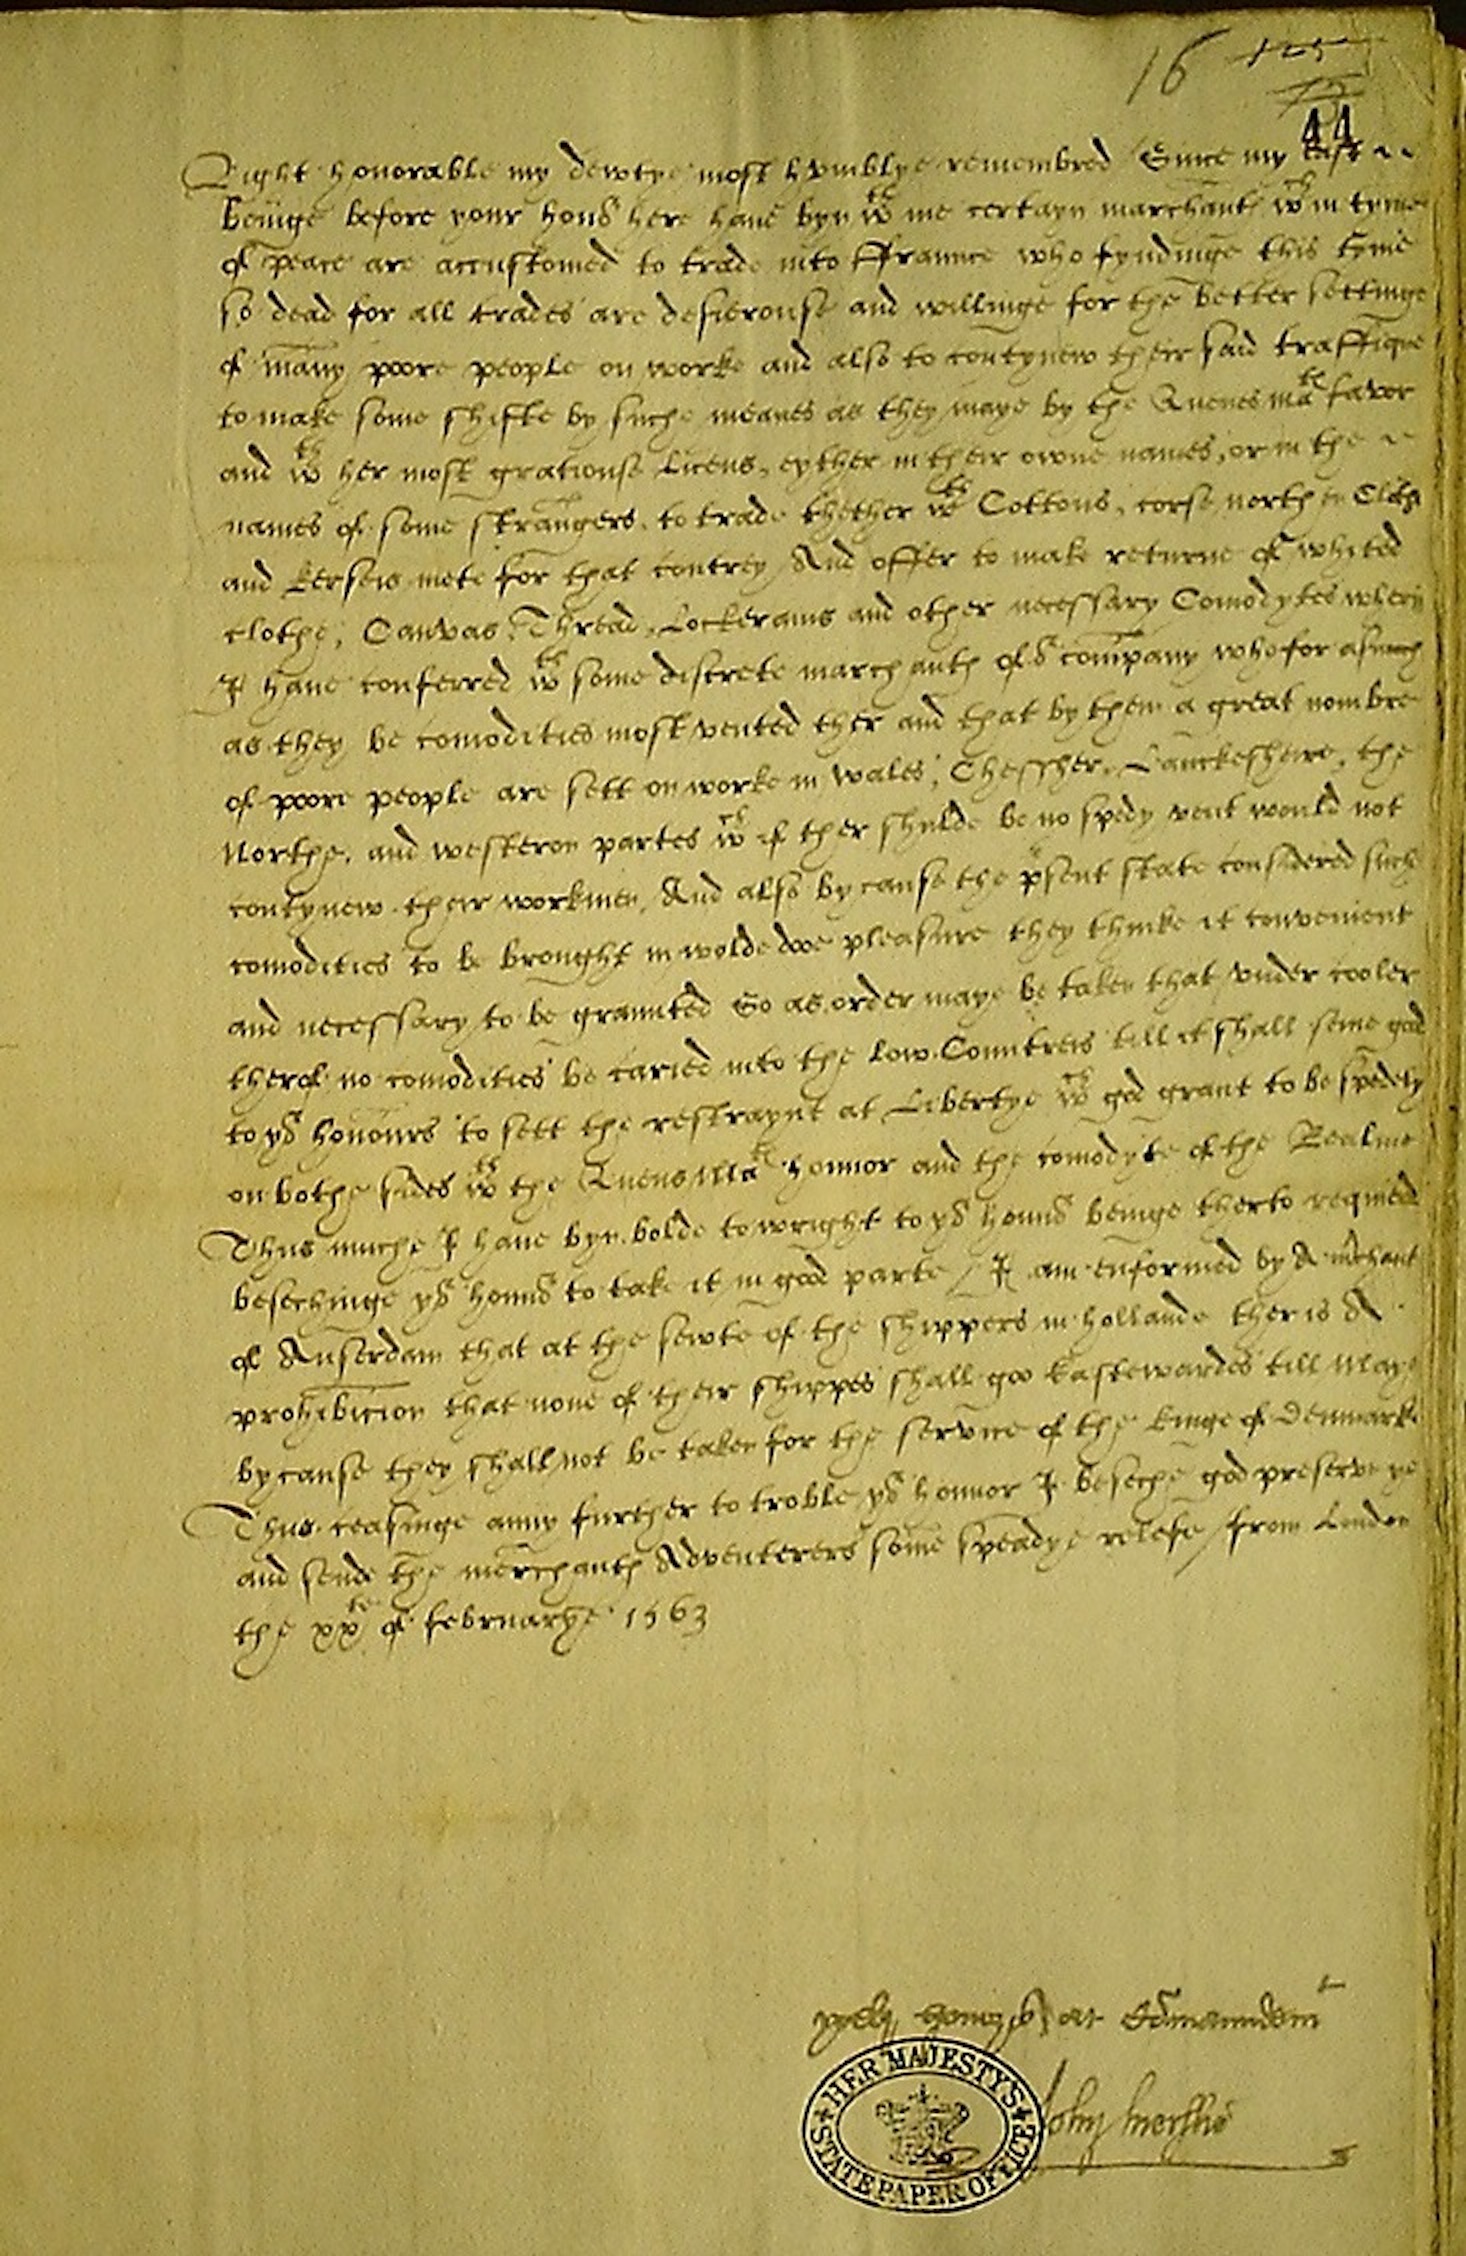 16 125
13
44
Right honorable my dewtye most humblye remembred Since my last
beinge before your honor here have byn wth me certayn marchantes wch in tyme
of peace are accustomed to trade into ffraunce who fyndinge this tyme
so dead for all trades are desierouse and willinge for the better settinge
of many poore people on worke and also to contynew their said traffique
to make some shifte by suche meanes as they maye by the Quenes mates favor
and wth her most gratiouse Licens, eyther in their owne names, or in the
names of some strangers, to trade thether wth Cottons, corse northen Cloth
and kerseis mete for that contrey And offer to make returne of whited
clothe, Canvas, Thread, Lockerams and other necessary Comodytes wherin
I have conferred wth some discrete marchantes of or company who for asmuch
as they be comodities most vented ther and that by them a great nombre
of poore people are sett on worke in Wales, Chessher, Lanckesheire, the
Northe, and westeron partes wch if ther shulde be no spedy vent would not
contynew their workmen, And also bycause the psent state considered suche
comodities to be brought in wolde doe pleasure they thinke it convenient
and necessary to be graunted So as order maye be taken that under cooler
therof no comodities be caried into the Low Countreis till it shall seme good
to yor honours to sett the restraynt at Libertye wch god grant to be spedely
on bothe sides wth the Quens Mates honnor and the comodyte of the Realme
Thus muche I have byn bolde to wright to yor honnor beinge therto required
besechinge yor honnor to take it in good parte / I am enformed by A mchant
of Amserdam that at the sewte of the shippers in hollande ther is A
prohibicion that none of their shippes shall goo Eastewardes till Maye
bycause they shall not be taken for the service of the kinge of Denmarke
Thus ceasinge anny further to troble yor honnor I beseche god preserve ye
and sende the merchantes Adventerers some speadye relefe / from London
the xxte of februarye 1563
at Comaundemt
HER MAJESTY'S
STATE PAPER OFFICE
John Mershe